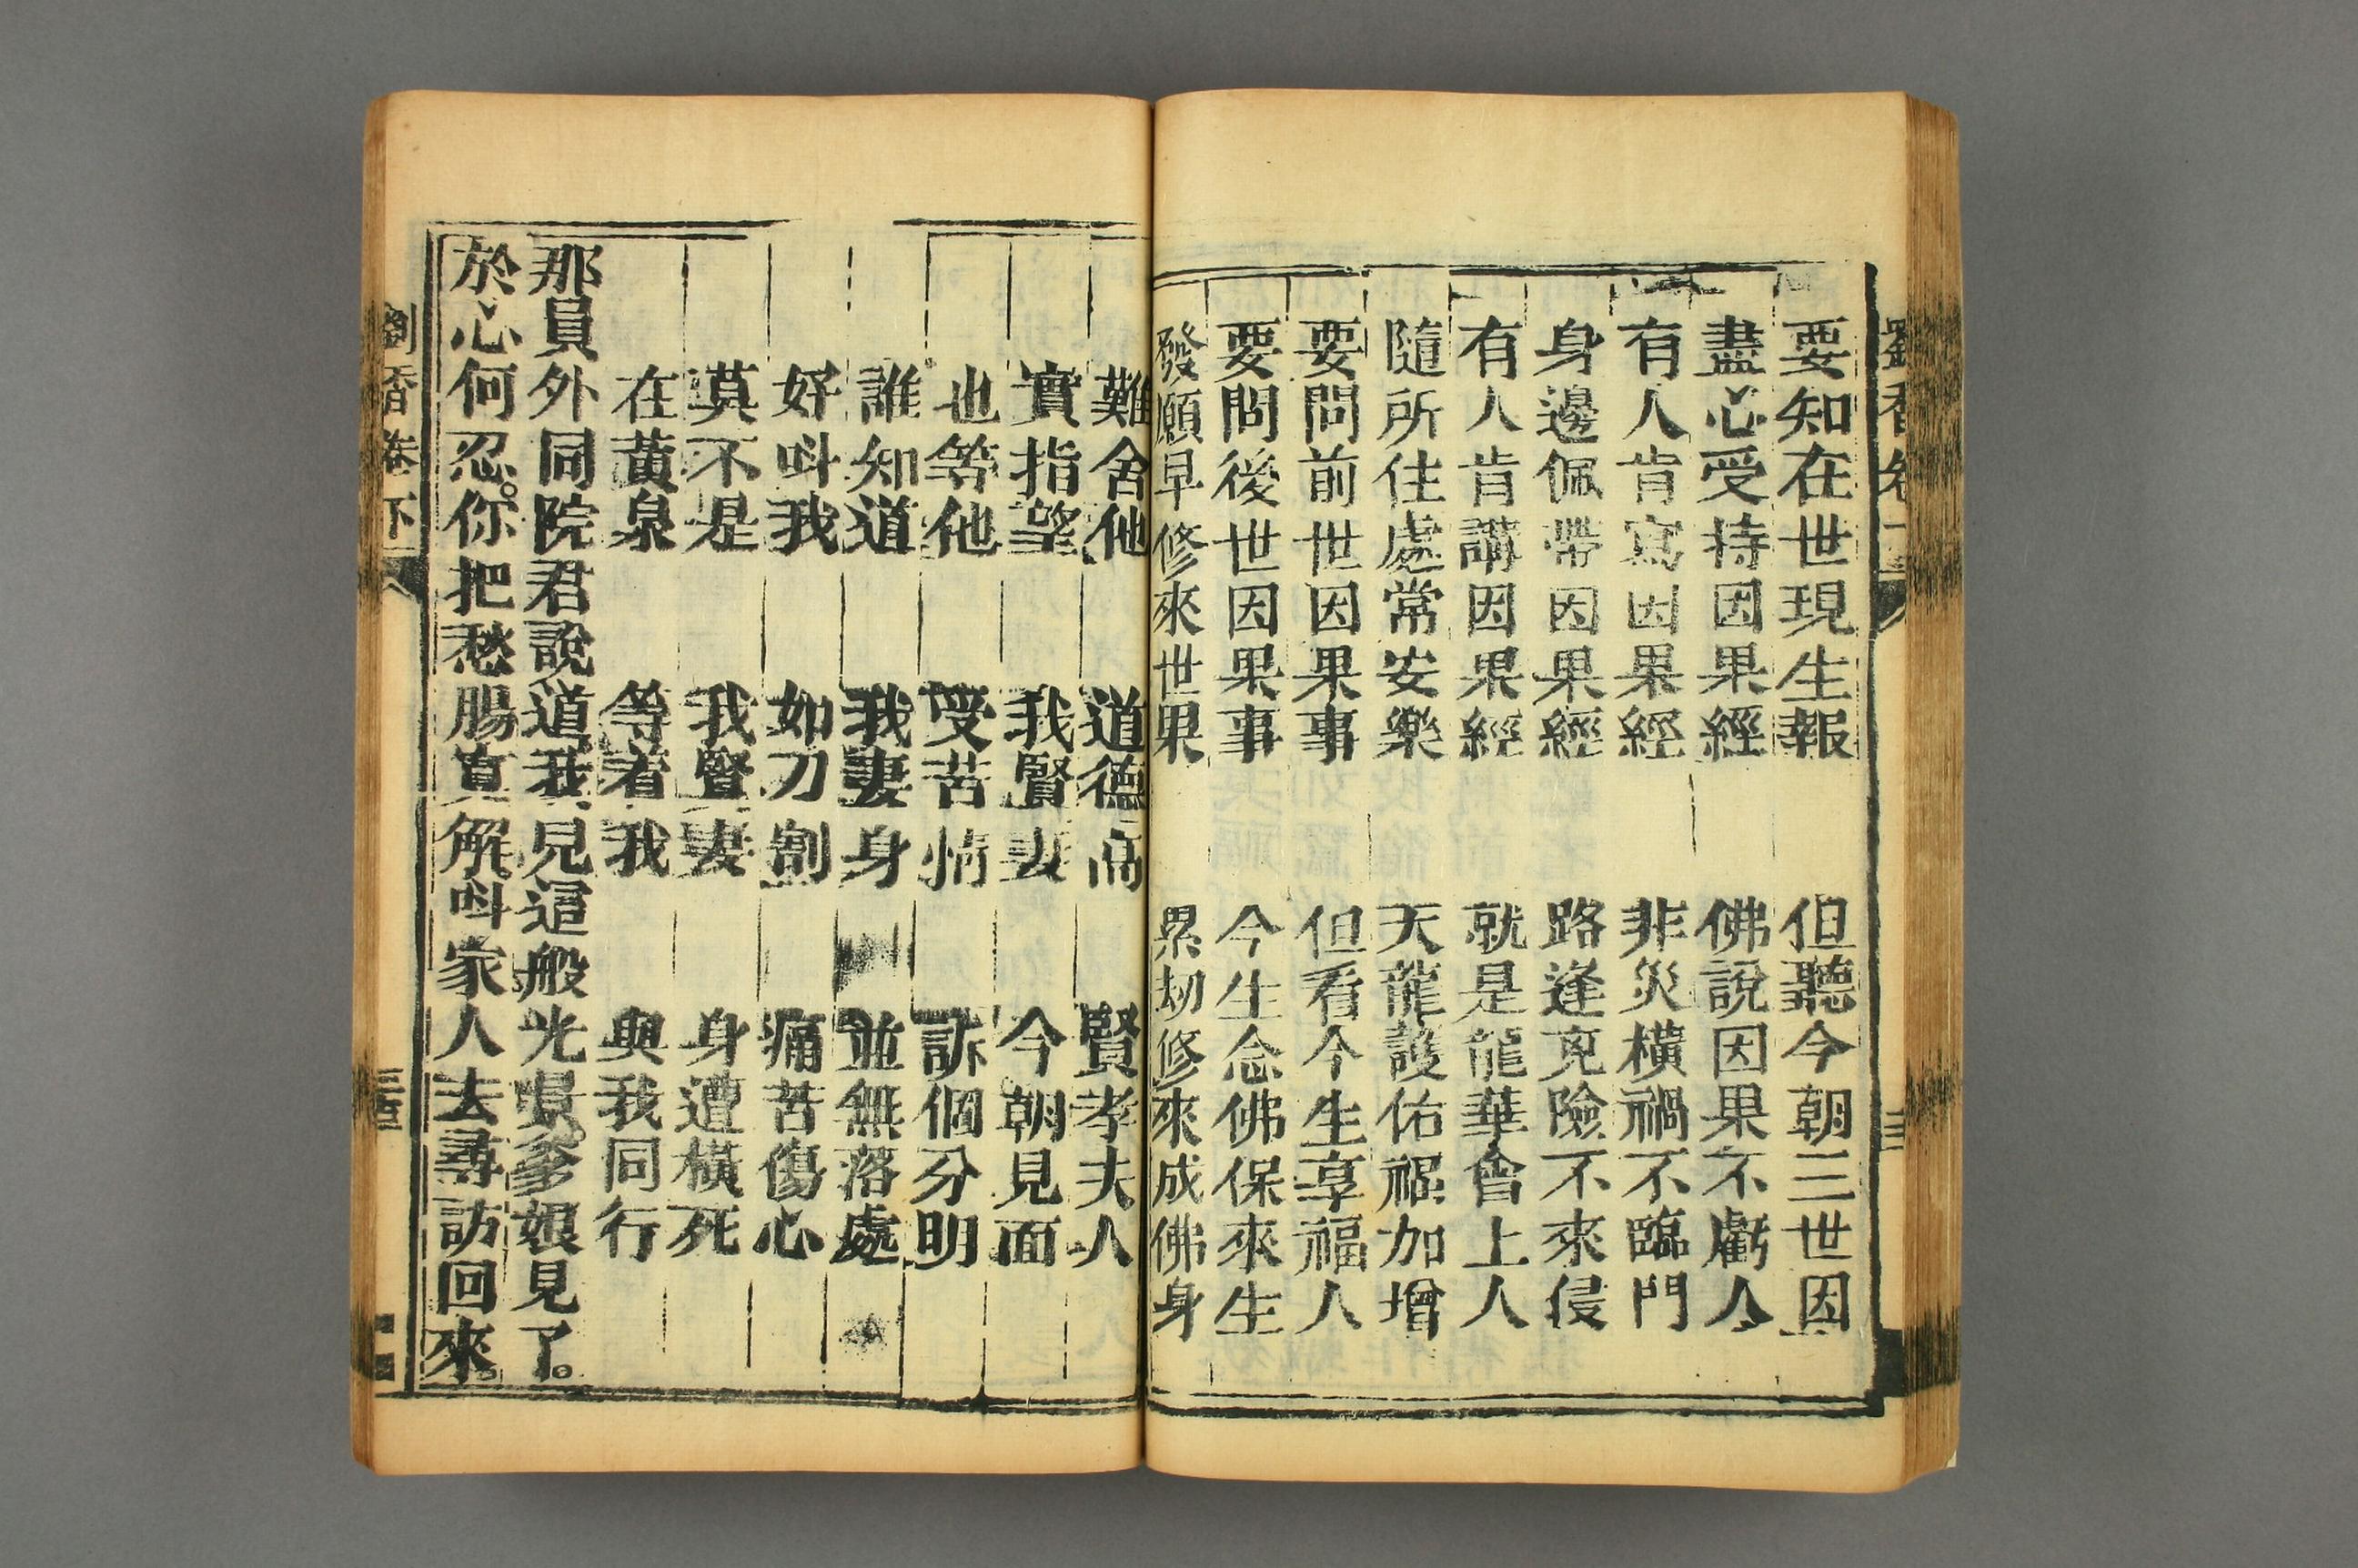 要知在世現生報 但聽今朝三世因
盡心受持因果經 佛說因果不虧人
有人肯寫因果經 非災橫禍不臨門
身邊佩帶因果經 路逢兇險不來侵
有人肯講因果經 就是龍華會上人
隨所住處常安樂 天龍護佑福加增
要問前世因果事 但看今生享福人
要問後世因果事 今生念佛保來生
發願早修來世果 累刼修來成佛身
難舍他 道德高 賢孝夫人
實指望 我賢妻 今朝見面
也等他 受苦情 訴個分明
誰知道 我妻身 並無落處
好呌我 如刀割 痛苦傷心
莫不是 我賢妻 身遭橫死
在黃泉 等着我 與我同行
那員外同院君說道我兒這般光景。爹娘見了。
於心何忍。你把愁腸寬解。呌家人去尋訪回來。
劉香卷下